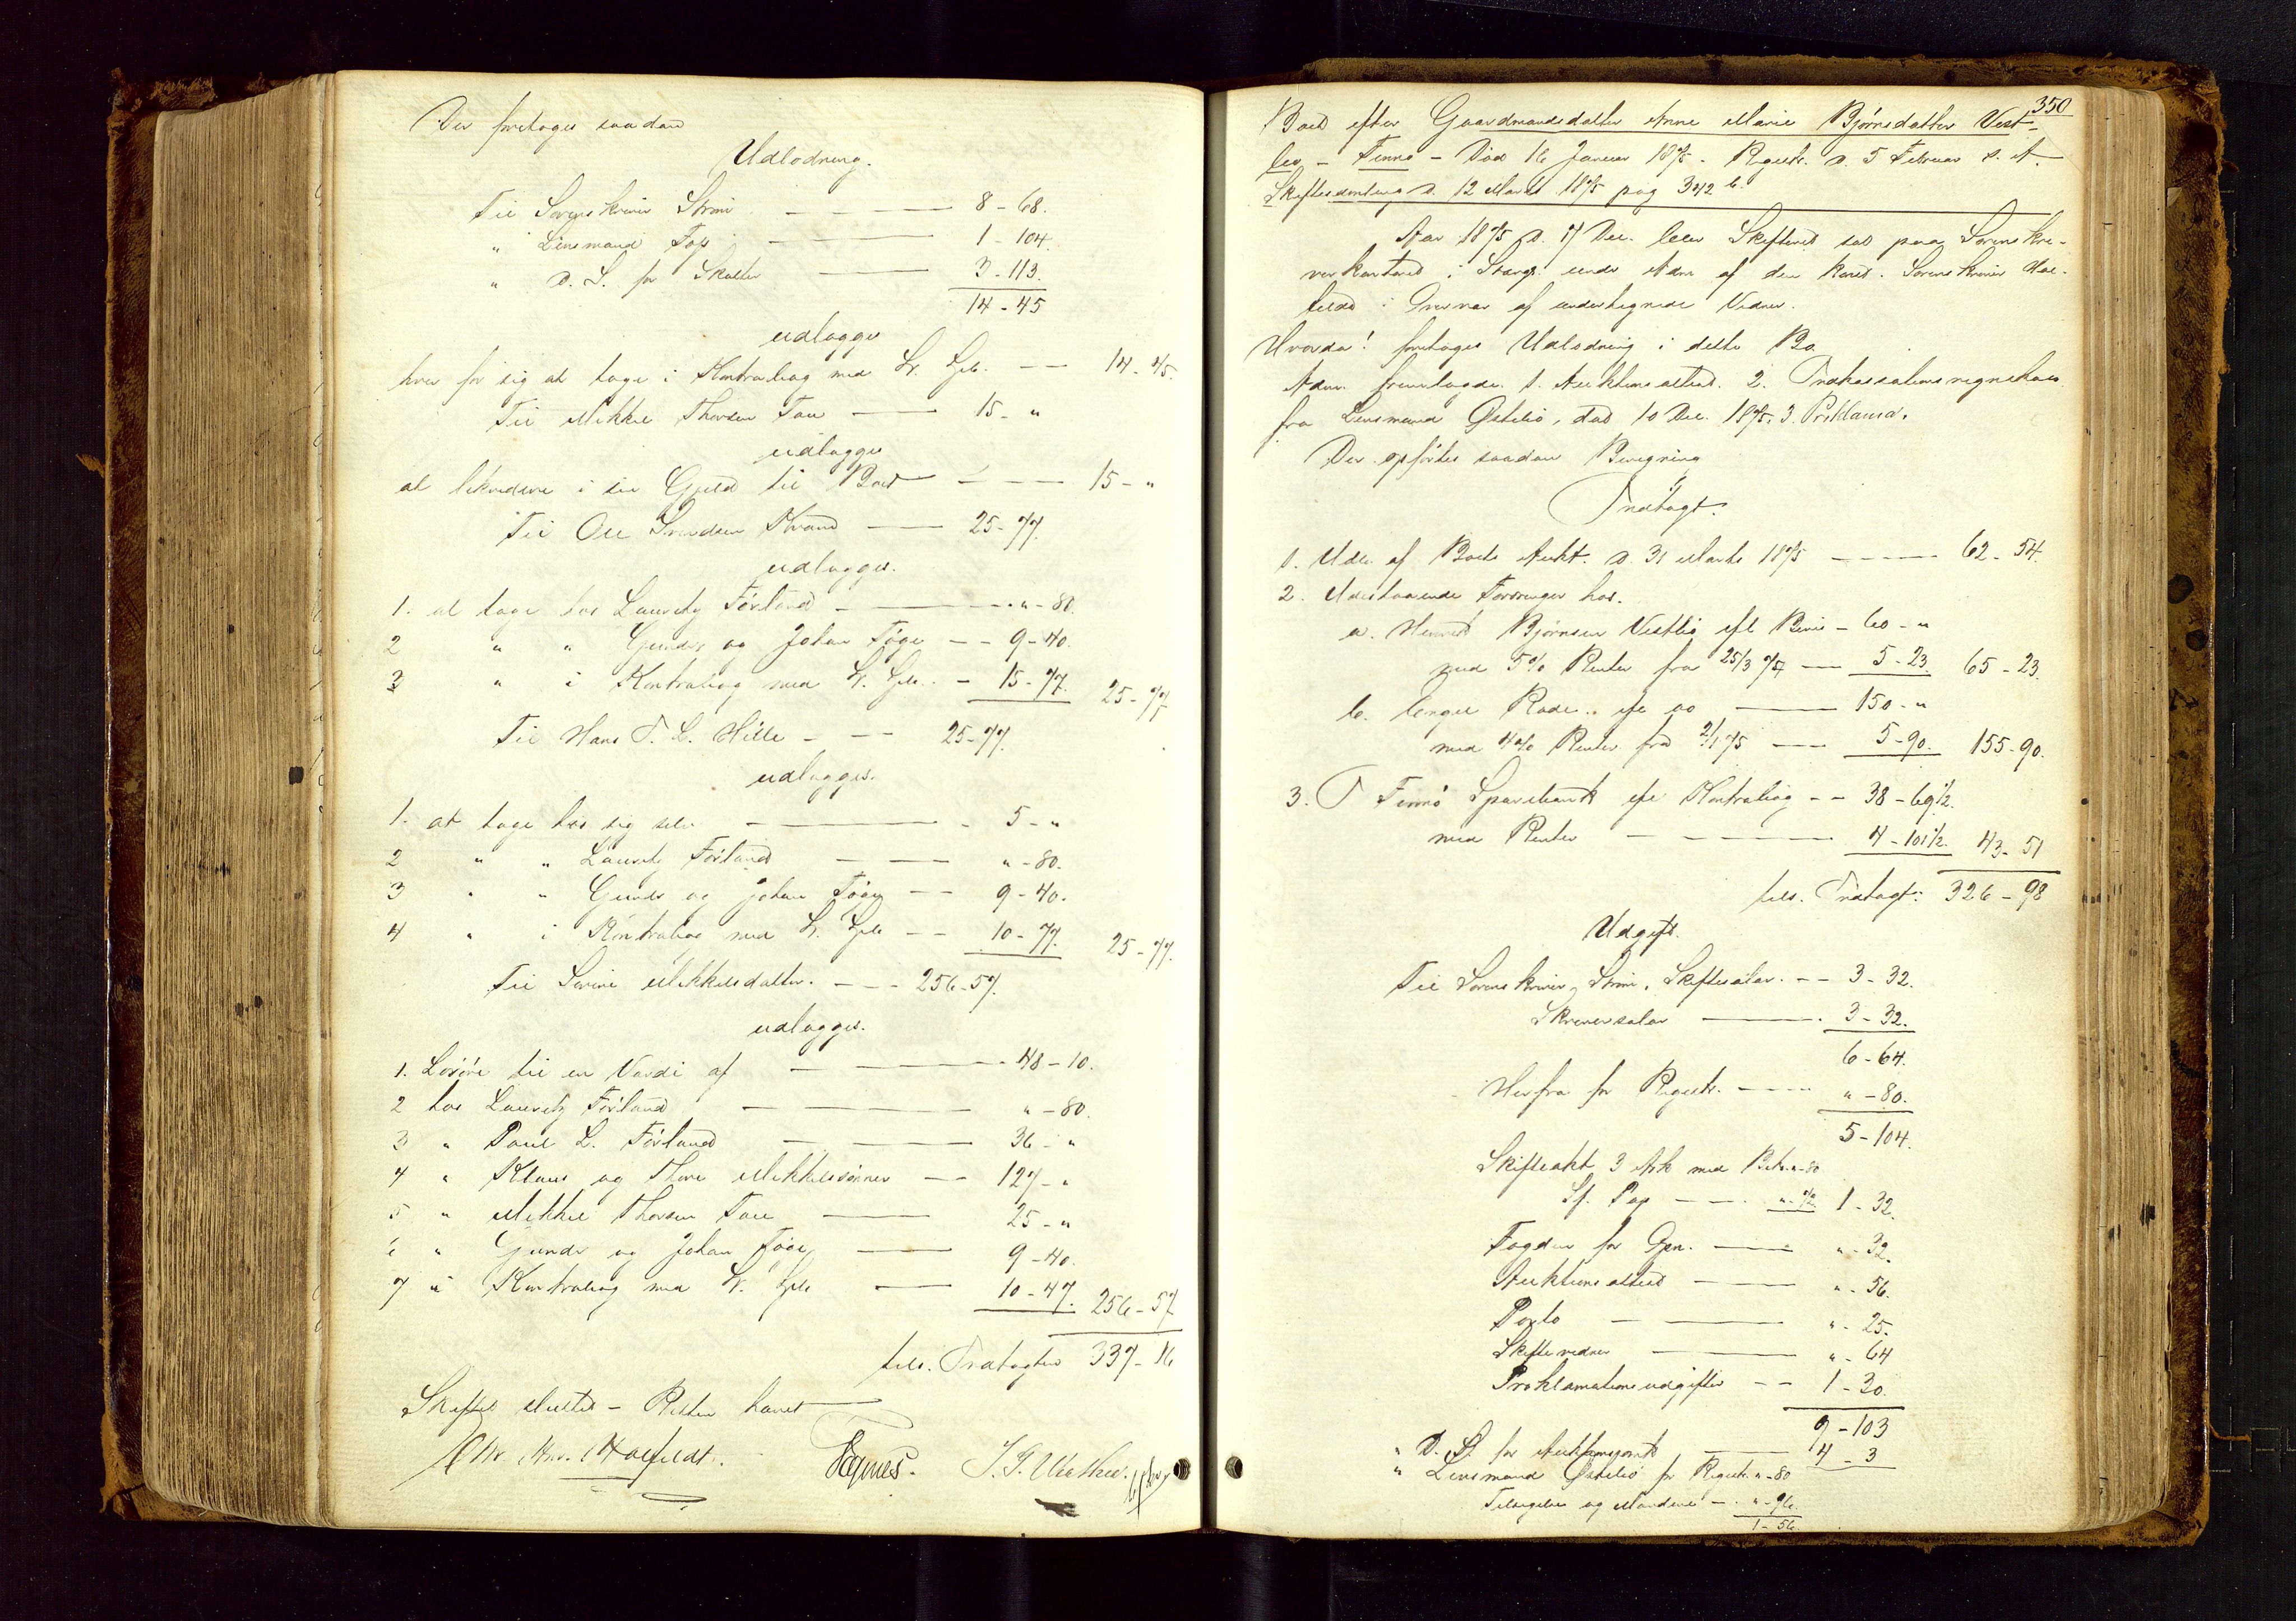 Der foretoges saadan
Udlodning.
Til Sorenskriver Strøm — 8-68.
" Lensmand Foss — 1-104.
" D. S. for Skatter — 3-113.
14-45
udlægges
hver for sig at tage i Kontrabog med — 14-45.
Til Mikkel Thorsen Tou — 15-"
udlægges
at likvidere i sin Gjæld til Boet — 15-"
Til Ole Svendsen Strand — 25-77.
udlægges.
1. at tage hos Lauritz Førland — "-80.
2 " " Gunder og Johan Føge — 9-40.
3 " i Kontrabog med — 15-77. 25-77
Til Hans T. L. Hille — 25-77.
udlægges.
1. at tage hos sig selv — 5-"
2 " " Lauritz Førland — "-80.
3 " " Gunder og Johan Føge — 9-40.
4 " i Kontrabog med — 10-77. 25-77.
Til Serine Mikkelsdatter. — 256-57.
udlægges.
1. Løsøre til en Værdi af — 48-10.
2 hos Lauritz Førland — "-80.
3 " Paul L. Førland — 36-"
4 " Klaus og Thore Mikkelsønner — 127-"
5 " Mikkel Thorsen Tou — 25-"
6 " Gunder og Johan Føge — 9-40.
7 i Kontrabog med — 10-47. 256-57
tils. Indtægten 337-16
Skiftet sluttet – Retten hævet
Chr. Hoelfeldt.
350
Boet efter Gaardmandsdatter Anne Marie Bjørnsdatter Vest-
bø – Finnø – Død 16 Januar 1875. Registr. D. 5 Februar s. A.
Skiftesamling D. 12 Marts 1875 pag 342 b.
Aar 1875 D. 17 Dec. blev Skifteret sat paa Sorenskri-
verkontoret i Stavgr. under Adm af den konst. Sorenskriver Hoe-
feldt i Overvær af undertegnede Vidner.
Hvorda! foretoges Udlodning i dette Bo
Adm. fremlagde 1. Auktionsattest. 2. Inkassationsregnskab
fra Lensmand Østebø, dad 10 Dec. 1875, 3. Proklama.
Der opførtes saadan Beregning
Indtægt.
1. Udb. af Boets Aukt. D. 31 Marts 1875 — 62-54.
2. Udestaaende Fordringer hos.
a. Henrik Bjørnsen Vestbø efl Bevis — 60-"
med 5% Renter fra 25/3 74 — 5-23. 65-23.
b. Bengel Rade. efl do — 150-"
med 4% Renter fra 2/1 75 — 5-90. 155-90.
3. I Finnø Sparebank efl Kontrabog — 38-69½.
med Renter — 4-101½. 43-51
tils. Indtægt: 326-98
Udgift.
Til Sorenskriver Strøm, Skiftesalær. — 3-32.
Skriversalær — 3-32.
6-64.
Herfra for Registr. — "-80.
5-104.
Skifteakt 3 Ark med Besk. "-80
St. Pap — "-72 1-32.
Fogden for Gjen. — "-32.
Auktionsattest — "-56.
Porto — "-25.
Skiftevidner — "-64
Proklamationsudgifter — 1-30.
9-103
" D. S. for — 4-3
" Lensmand Østebø for Registr. "-80
Tilsigelse og Mandene — "-96.
1-56